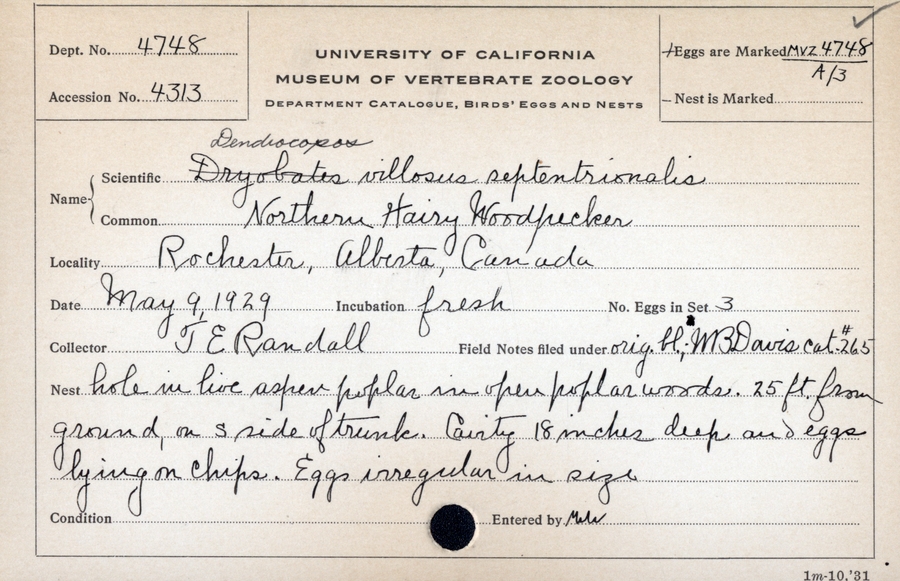 Dept. No. 4748
Accession No. 4313
UNIVERSITY OF CALIFORNIA
MUSEUM OF VERTEBRATE ZOOLOGY
DEPARTMENT CATALOGUE, BIRDS' EGGS AND NESTS
Eggs are Marked MVZ 4748
A/3
Nest is Marked
Dendrocopos
Name Scientific Dryobates villosus septentrionalis
Common Northern Hairy Woodpecker
Locality Rochester, Alberta, Canada
Date May 9, 1929 Incubation fresh No. Eggs in Set 3
Collector T E Randall Field Notes filed under orig. bl; WBDavis cat. #265
Nest hole in live aspen poplar in open poplar woods. 25 ft. from
ground, on S side of trunk. Cavity 18 inches deep and eggs
lying on chips. Eggs irregular in size
Condition Entered by
1m-10,'31